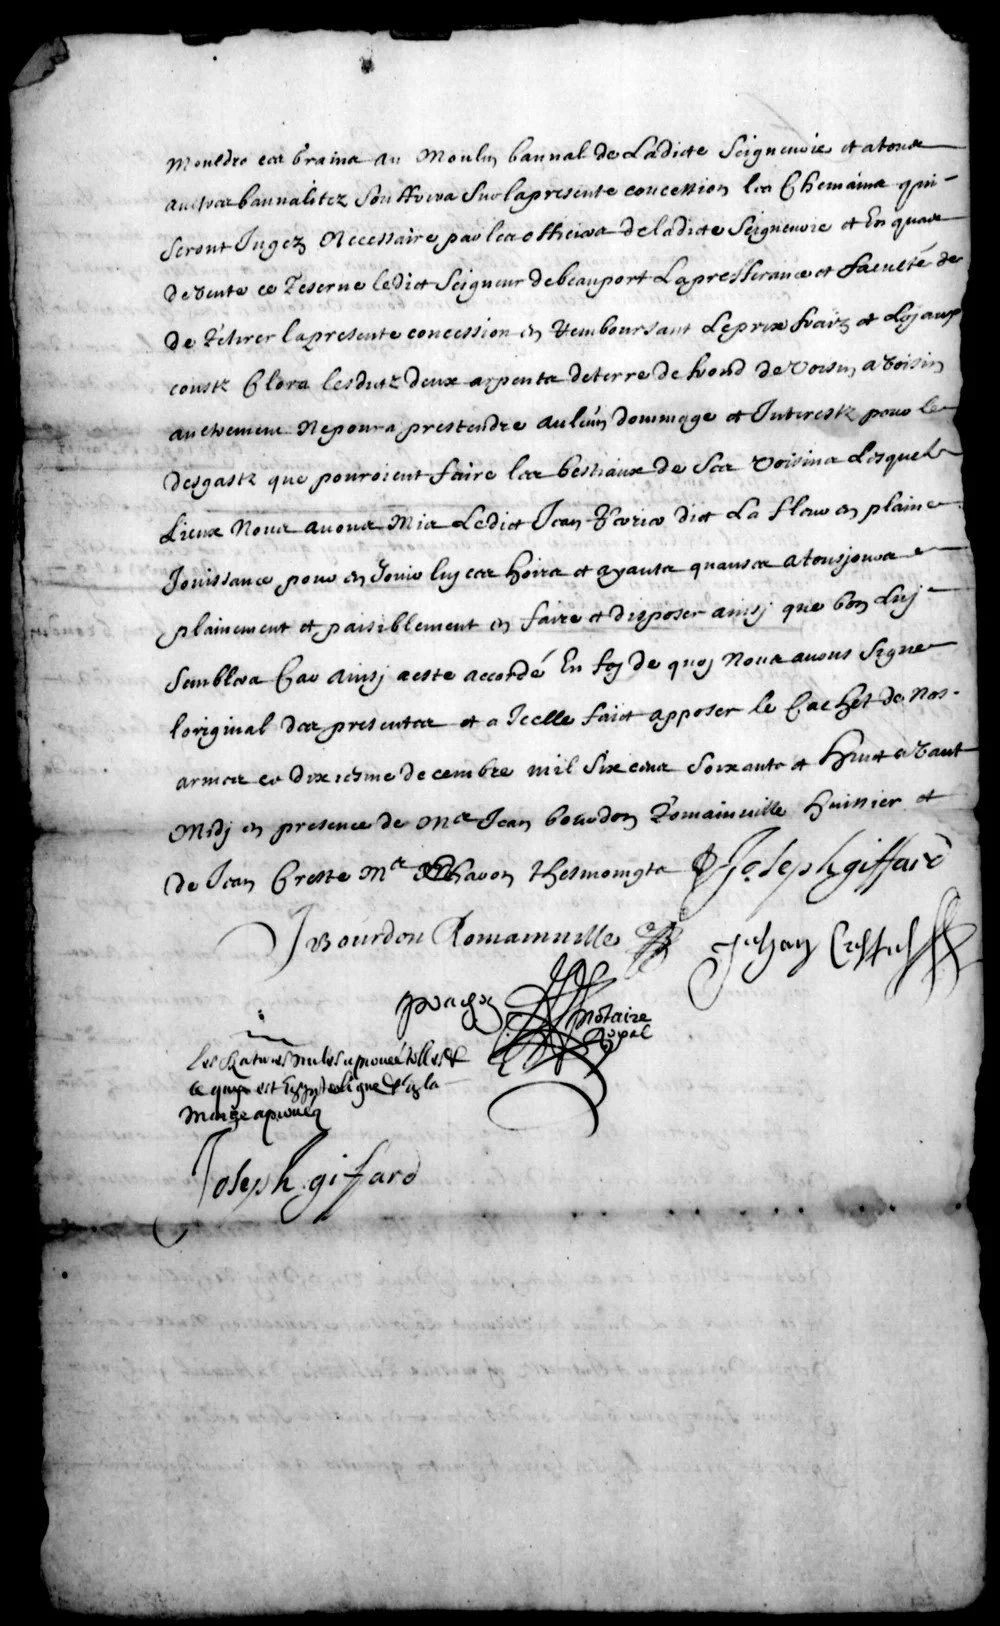 Mouldre ces Grains au Moulin bannal de Ladicte Seigneurie et a tous
autres bannalitez Souffrira Sur la presente concession les Chemains qui
Seront Jugez Necessaire par les officiers de ladicte Seigneurie et En quas
de vente ce Reserne ledict Seigneur de beauport La prefferance et faculté de
de Retirer la presente concession en Remboursant Le prix fraiz et Loyaux
coustz Clora lesdictz deux arpents de terre de frond de voisin a voisin
autrement Ne poura prestendre auleun dommage et Interestz pour le
desgastz que pouroient faire les bestiaux de Ses voisins Lesquels
Lieux Nous avons Mis Ledict Jean dict La fleur en plaine
Jouissance pour en Jouir luy ces hoirs et ayants quause a tousjours
plainement et paisiblement en faire et disposer ainsy que bon Luy
Semblera Car Ainsy a esté accordé En foy de quoy Nous avons Signé
l'original des presentes et a Icelle faict apposer le Cachet de Nos
armes ce dixiesme decembre mil Six cens Soixante et huict avant
Midj en presence de Me Jean bourdon Romainville huissier et
de Jean Creste Me Charon thesmoingts Joseph giffard
J Bourdon Romainville Jehan Creste
Notaire
Royal
approuvé
Joseph giffard